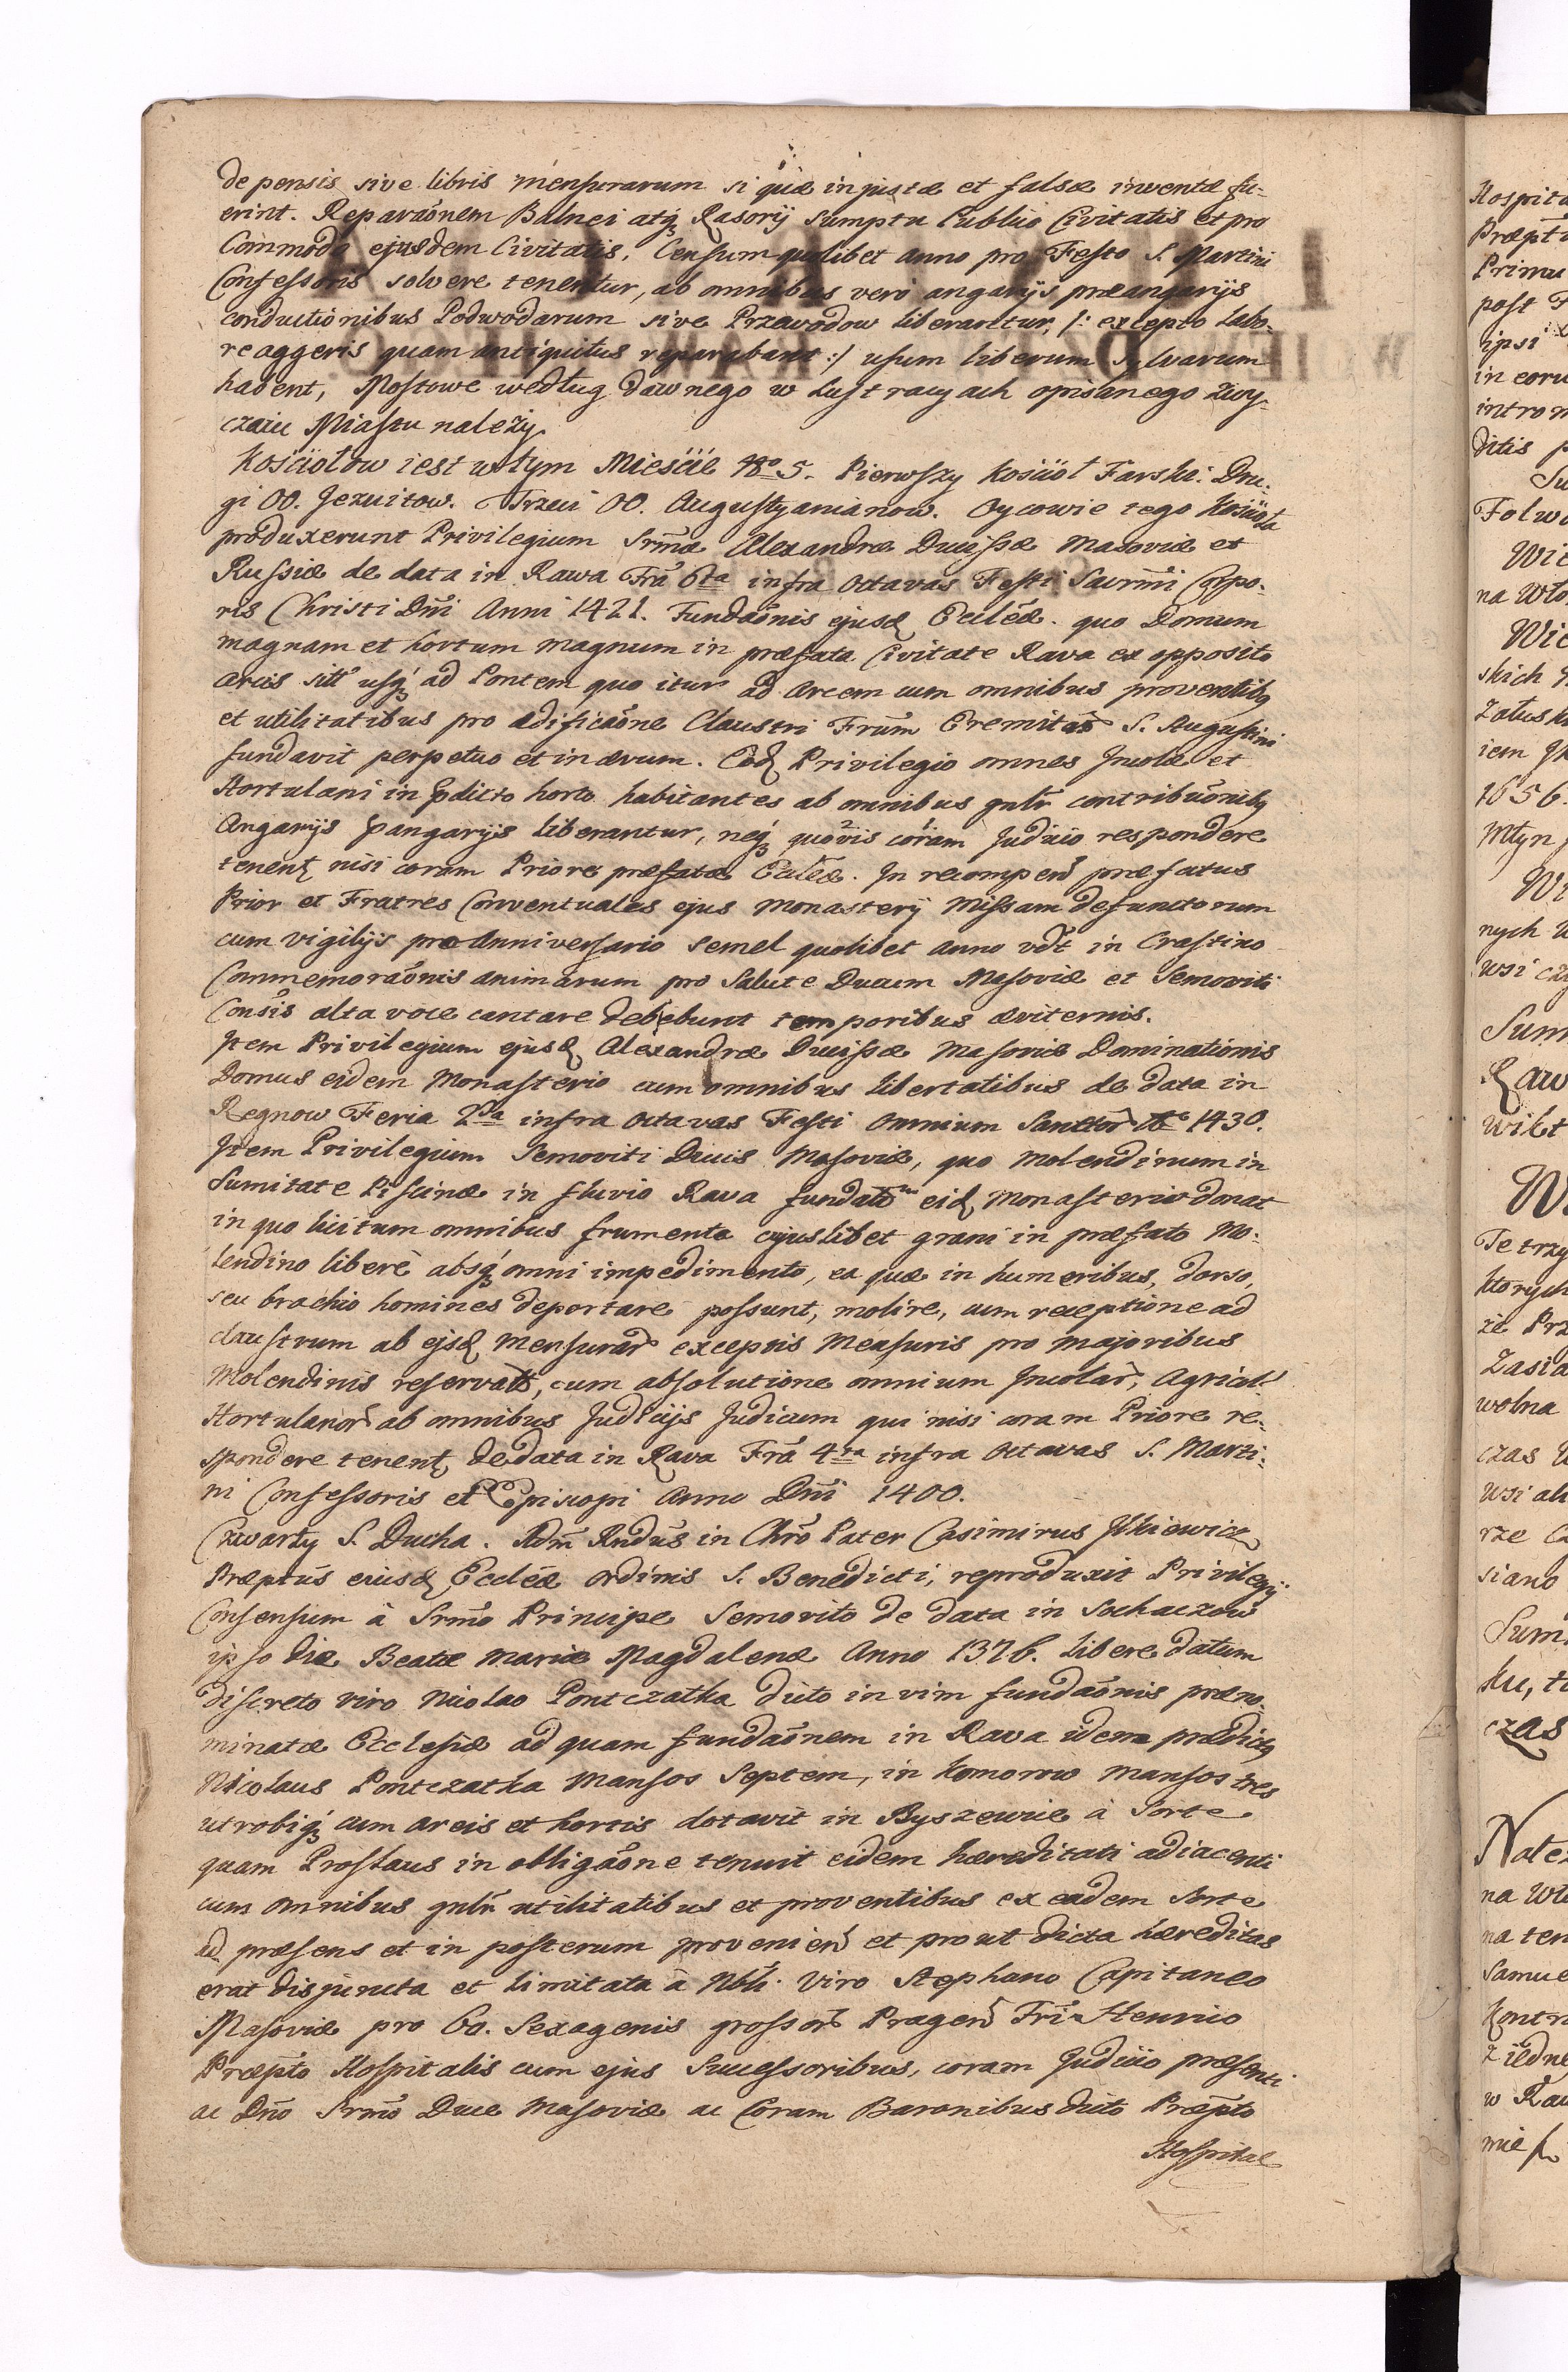 de pensis sive libris mensurarum si quæ injustæ et falsæ inventæ fu-
erint. Reparaõnem Balnei atq; Rasorij sumptu Publio Civitatis et pro
Commodo ejusdem Civitatis, Censum quolibet anno pro Festo S. Martini
Confessoris solvere tenentur, ab omnibus vero angarijs præangarijs
conductionibus Podwodarum sive Przewodow liberantur, /: excepto labo-
re aggeris quam antiquitus reparabant :/ usum liberum Sylvarum
habent, Mostowe według dawnego w Lustracyach opisanego zwy-
czaiu Miastu należy.
Kościołow iest w tym Mieście Nro 5. Pierwszy Kościoł Farski. Dru-
gi OO. Jezuitow. Trzeci OO. Augustyanianow. Oycowie tego Kościoła
produxerunt Privilegium Srmæ Alexandræ Ducissæ Masoviæ et
Russiæ de data in Rawa Fra 6ta infra Octavas Festi Sacrmi Corpo-
ris Christi Dni Anni 1421. Fundaõnis ejusd Eccleæ. quo Domum
magnam et hortum magnum in præfata Civitate Rava ex opposito
arcis sitt usq; ad Pontem quo itur ad Arcem cum omnibus proventibq
et utilitatibus pro ædificaõne Claustri Frum Eremitar S. Augustini
fundavit perpetuo et in ævum. Eod Privilegio omnes Incolæ et
Hortulani in pdicto horto habitantes ab omnibus gnlr contribuõnibq
Angarijs pangarijs liberantur, neq; quovis coram Judicio respondere
tenent nisi coram Priore præfatæ Eccleæ. In recompen præfatus
Prior et Fratres Conventuales ejus Monasterij Missam defunctorum
cum vigilijs pro Anniversario semel quolibet anno vdt in Crastino
Commemoraõnis animarum pro Salute Ducum Masoviæ et Semoviti
Consis alta voce cantare debebunt temporibus æviternis.
Item Privilegium ejusd Alexandræ Ducissæ Masoviæ Dominationis
Domus eidem Monasterio cum omnibus libertatibus de data in
Regnow Feria 2da infra octavas Festi Omnium Sanctor Ao 1430.
Item Privilegium Semoviti Ducis Masoviæ, quo Molendinum in
Sumitate Piscinæ in fluvio Rava fundatum eid Monasterio donat
in quo licitum omnibus frumenta cujuslibet grani in præfato Mo-
lendino libere absq; omni impedimento, ea quæ in humeribus, dorso,
seu brachio homines deportare possunt, molire, cum receptione ad
claustrum ab ejsd Mensurar exceptis Mensuris pro majoribus
Molendinis reservatis, cum absolutione omnium Incolar, Agricol
Hortulanor ab omnibus Judicijs Judicum qui nisi coram Priore re-
spondere tenent de data in Rava Fra 4ta infra Octavas S. Marti-
ni Confessoris et Episcopi Anno Dni 1400.
Czwarty S. Ducha. Adm Rndus in Chro Pater Casimirus
Præptus eiusd Eccleæ ordinis S. Benedicti, reproduxit Privilegij
Consensum à Srmo Principe Semovito de data in Sochaczow
ipso die Beatæ Mariæ Magdalenæ Anno 1376. libere datum
discreto viro Nicolao Pontczatka dicto in vim fundaõnis præno-
minatæ Ecclesiæ ad quam fundaõnem in Rava idem prædictq
Nicolaus Pontczatka Mansos Septem, in Komorow Mansos tres
utrobiq; cum areis et hortis dotavit in Byszewice à Sorte
quam Proslaus in obligaõne tenuit eidem hæreditati adiacenti
cum omnibus gnlr utilitatibus et proventibus ex eadem Sorte
ad præsens et in posterum provenien et prout dicta hæreditas
erat disjuncta et limitata à Nbli Viro Stephano Capitaneo
Masoviæ pro 60. Sexagenis grossor Pragen Fri Henrico
Præpto Hospitalis cum ejus Successoribus, coram Judicio præsenti
ac Dno Srmo Duce Masoviæ ac Coram Baronibus dicto Præpto
Hospital